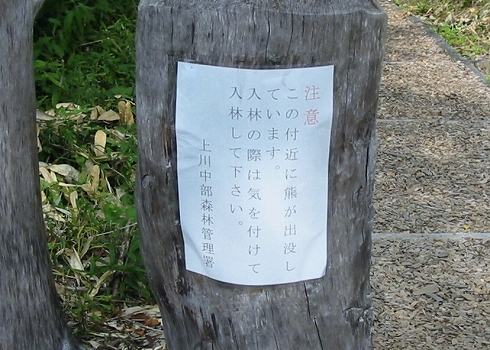 注意
この付近に熊が出没し
ています。
入林の際は気を付けて
入林して下さい。
上川中部森林管理署